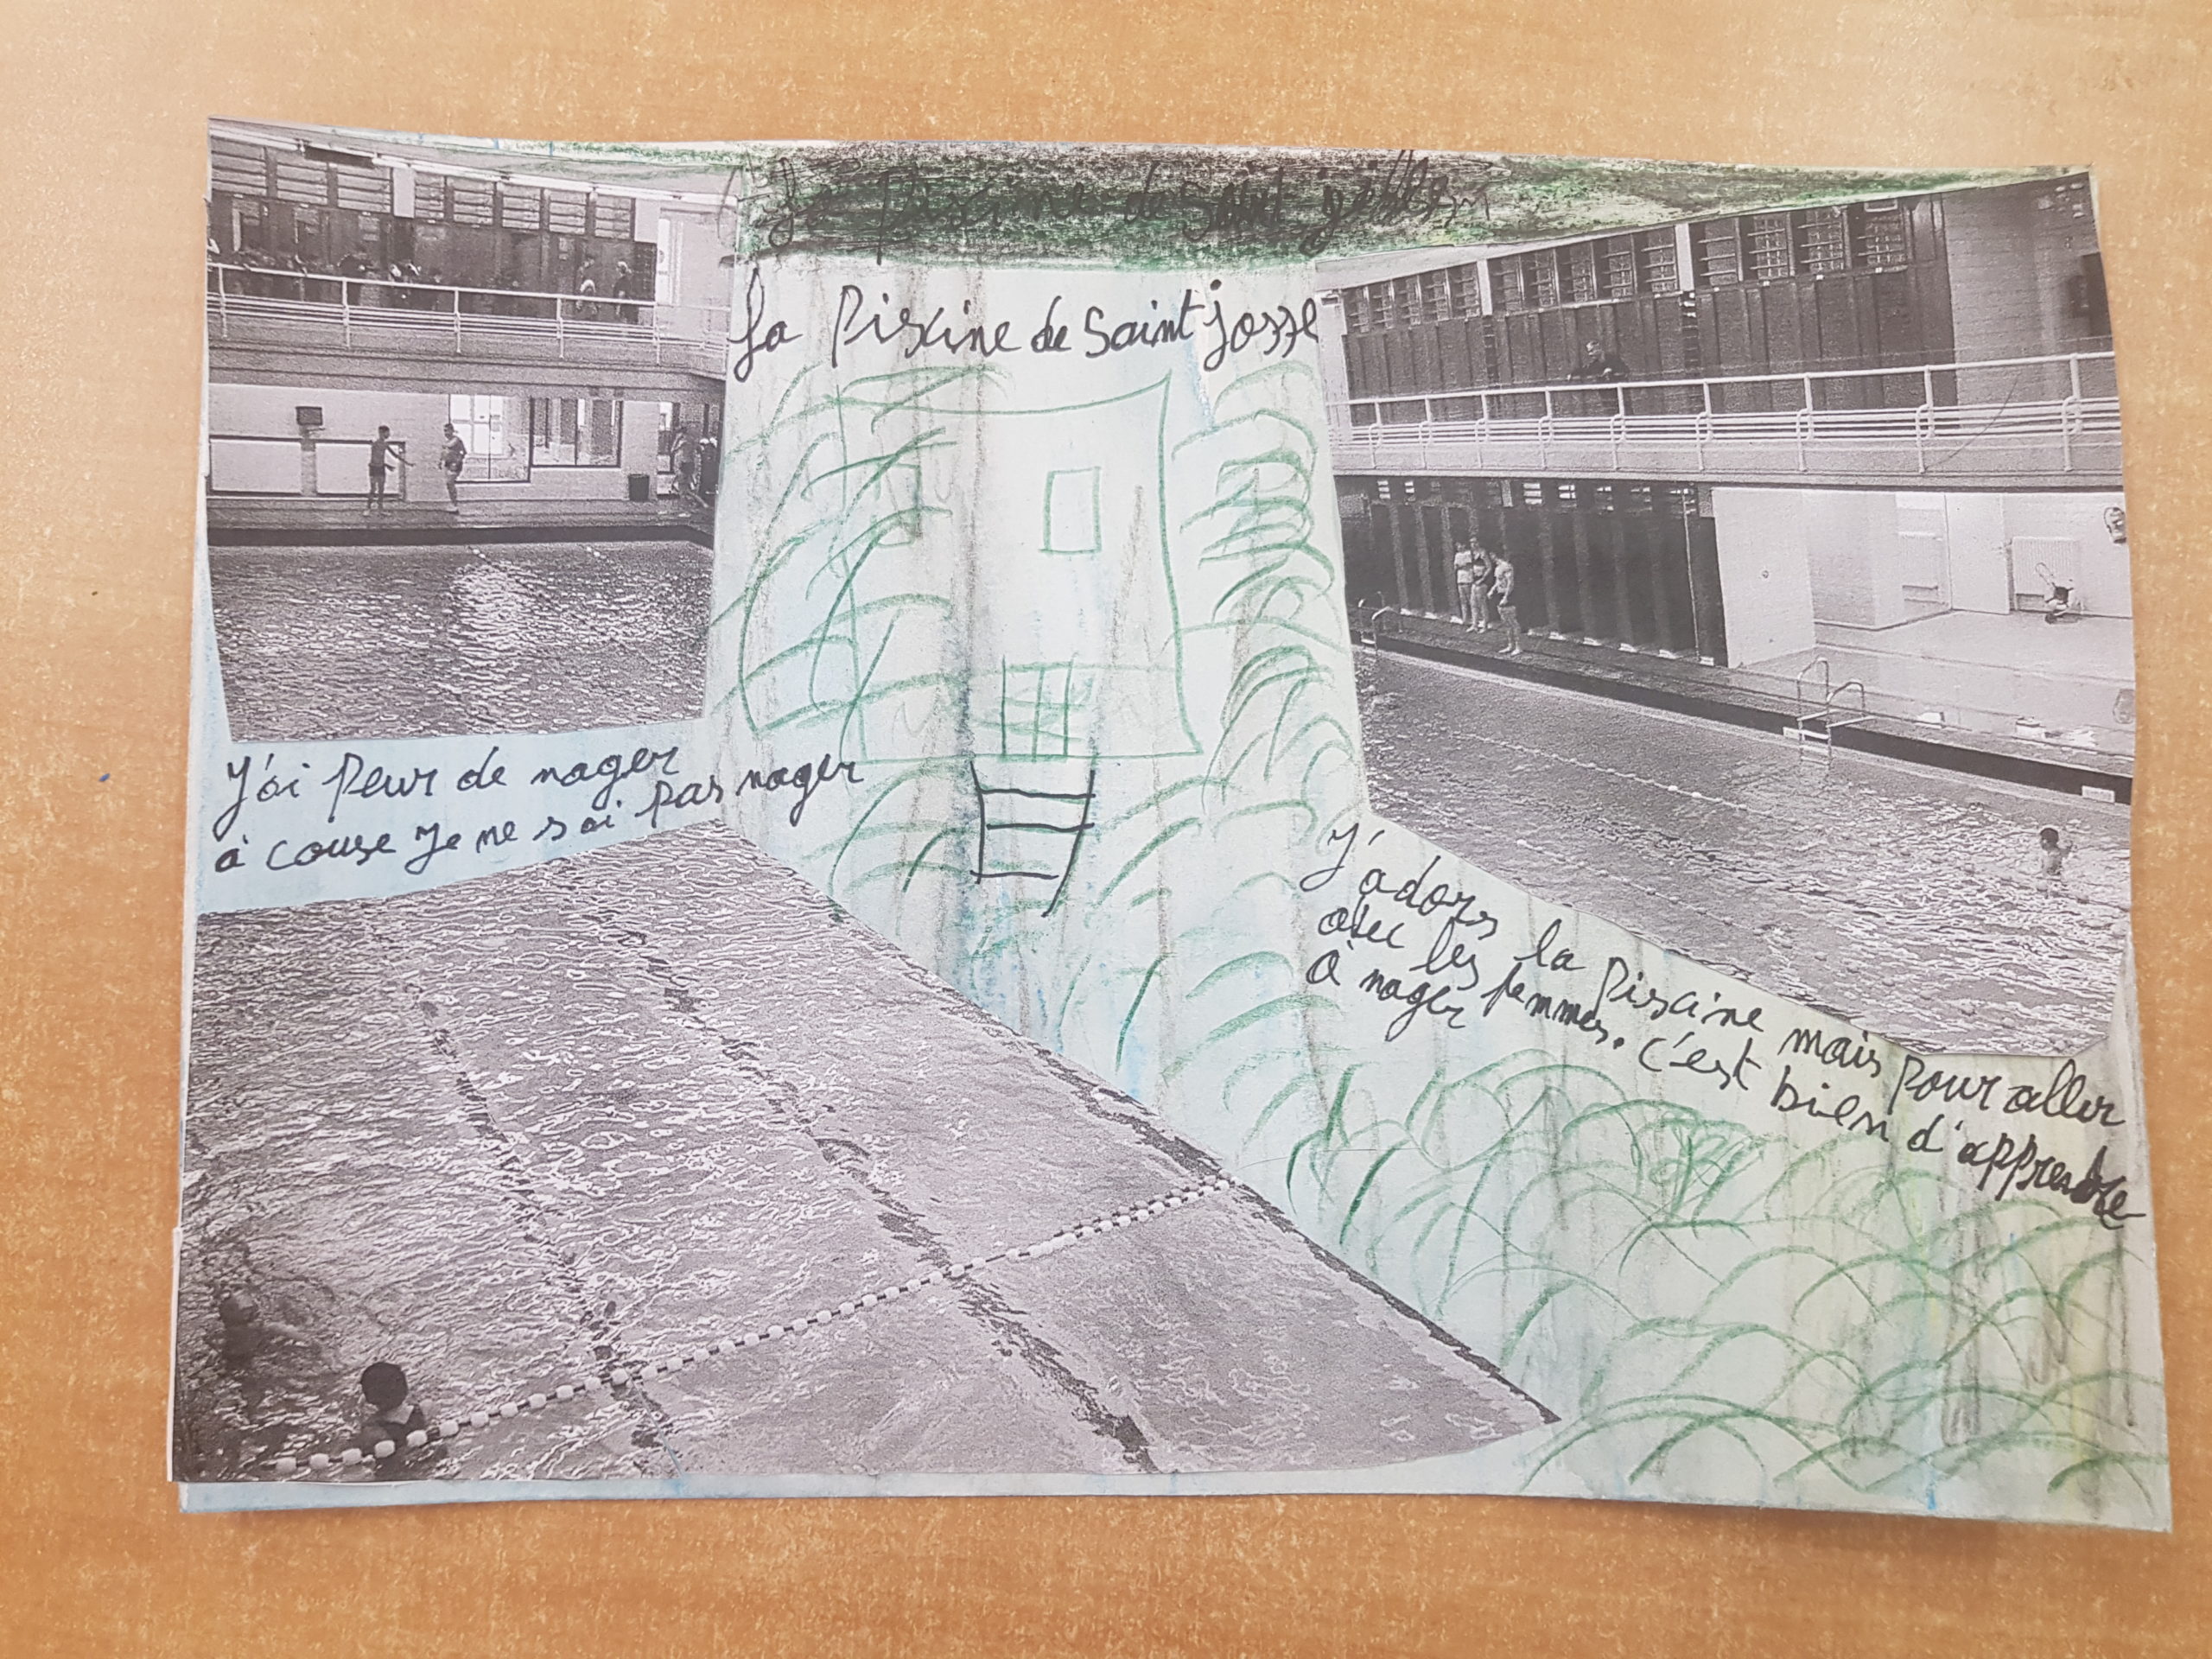 La piscine de Saint
La Piscine de Saint josse
J'ai peur de nager
à couse je ne sai pas nager
J'adors la piscine mais pour aller
avec les femmes. c'est bien d'apprendre
à nager